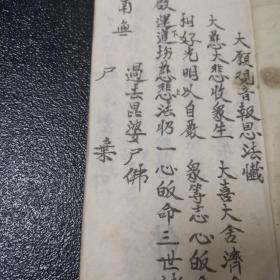 大願覌音報恩法懴
大慈大悲收衆生 大喜大舍濟
相好光明以自嚴 衆等志心皈
運道塲慈悲法 一心皈命三世
過去毘婆尸佛
南無
尸 棄